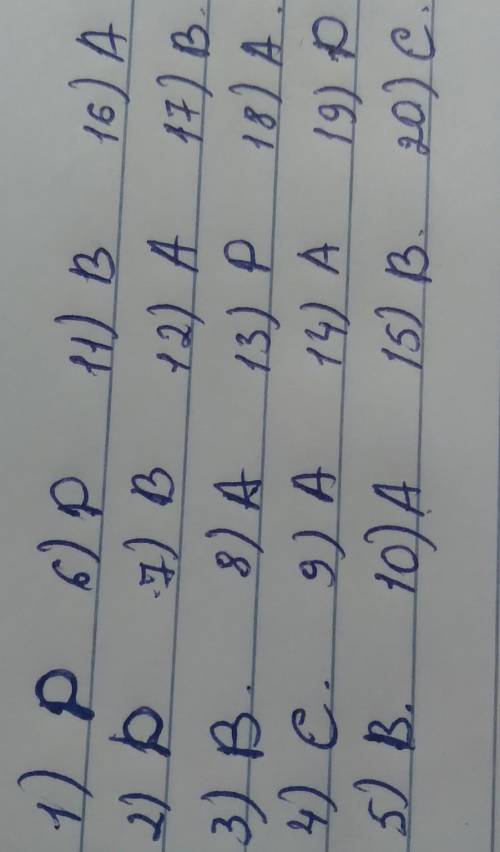 1) P 6) P 11) B 16) A
2) P 7) B 12) A 17) B.
3) B. 8) A 13) P 18) A.
4) C. 9) A 14) A 19) P
5) B. 10) A 15) B. 20) C.